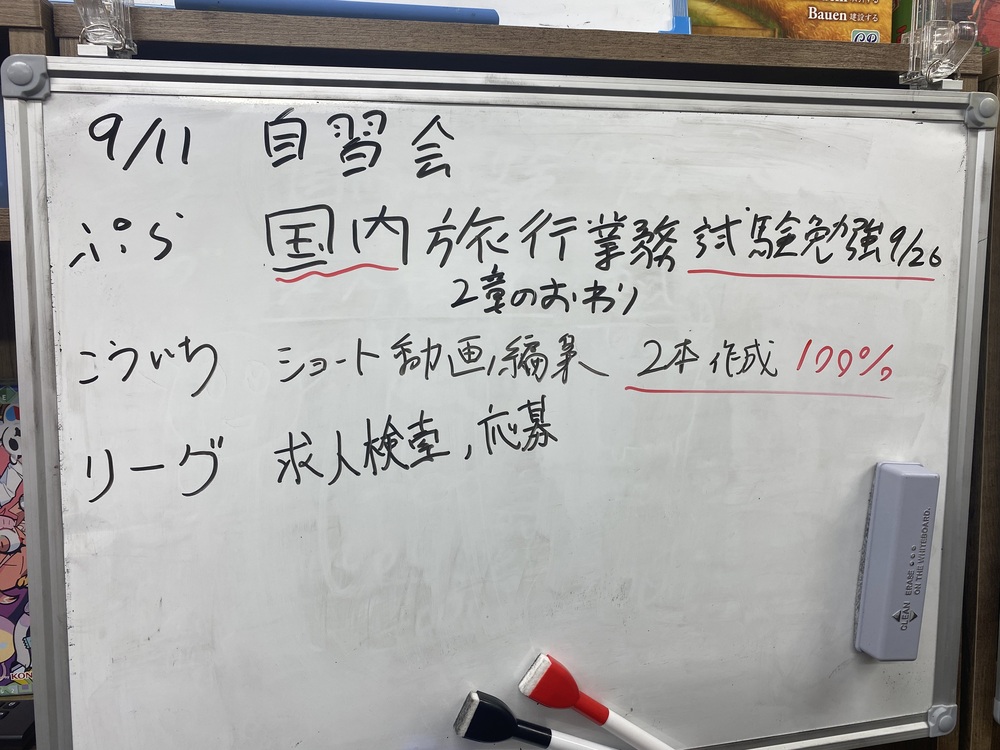 Bauen 建設する
9/11 自習会
ぷら 国内旅行業務試験勉強9/26
2章のおわり
こういち ショート動画編集 2本作成 100%
リーグ 求人検索,応募
CLEAN ERASE
ON THE WHITEBOARD.
KON